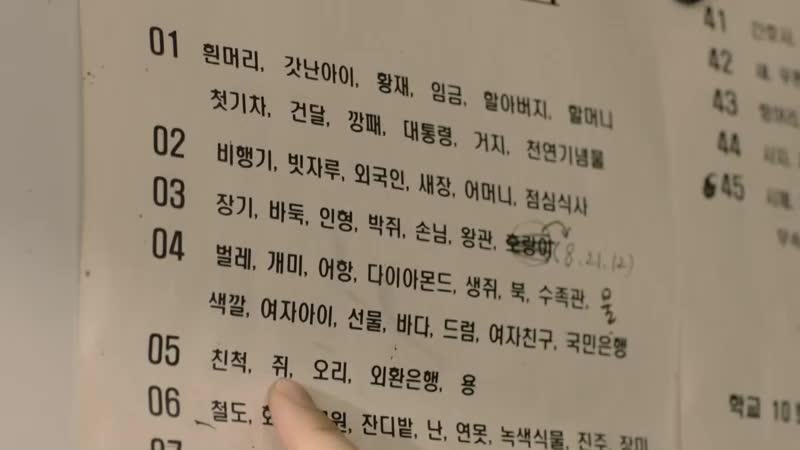 01 흰머리, 갓난아이, 황재, 임금, 할아버지, 할머니
첫기차, 건달, 깡패, 대통령, 거지, 천연기념물
02 비행기, 빗자루, 외국인, 새장, 어머니, 점심식사
03 장기, 바둑, 인형, 박쥐, 손님, 왕관, 호랑이 (8.21.12)
04 벌레, 개미, 어항, 다이아몬드, 생쥐, 북, 수족관, 물
색깔, 여자아이, 선물, 바다, 드럼, 여자친구, 국민은행
05 친척, 쥐, 오리, 외환은행, 용
06 철도, 잔디밭, 난, 연못, 녹색식물, 진주, 장미
07
41 간호사,
42
43
44 사자,
45
학교 10